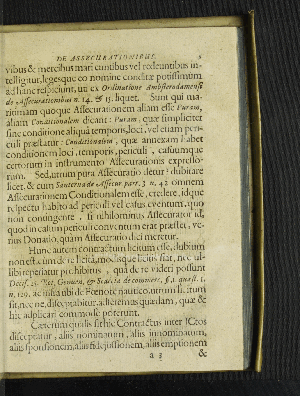 DE ASSECURATIONIBUS.
vibus & mercibus mari euntibus vel redeuntibus in-
telligitur, legesque eo nomine conditæ potissimum
ad hunc respiciunt, ut ex Ordinatione Amsterodamensi
de Assecurationibus n. 14. & 15. liquet. Sunt qui ma-
ritimam quoque Assecurationem aliam esse Puram,
aliam Conditionalem dicant: Puram, quæ simpliciter
sine conditione aliqua temporis, loci, vel etiam peri-
culi præstatur: Conditionalem, quæ annexam habet
conditionem loci, temporis, periculi, casuumque
certorum in instrumento Assecurationis expresso-
rum. Sed, utrum pura Assecuratio detur, dubitare
licet, & cum Santerna de Assecur. part. 3. n. 42 omnem
Assecurationem Conditionalem esse, credere, idque
respectu habito ad periculi vel casus eventum, quo
non contingente, si nihilominus Assecurator id,
quod in casum periculi conventum erat præstet, ve-
rius Donatio, quam Assecuratio dici meretur.
Hunc autem contractum licitum esse, dubium
non est. cum de re licita, modisque licitis fiat, nec ul-
libi reperiatur prohibitus, qua de re videri possunt
Decis. Rot. Genuæ, & Scaccia de commerc. § 1. quæst. 1.
n. 129. ac nisi ubi de Fœnore nautico, utrum licitum
sit, nec ne, disceptabitur, alteremus quædam, quæ &
hic adplicari commode poterunt.
Cæterum qualis sit hic Contractus inter JCtos
disceptatur, aliis nominatum, aliis innominatum,
aliis sponsionem, aliis fidejussionem, aliis emptionem
a 3 &